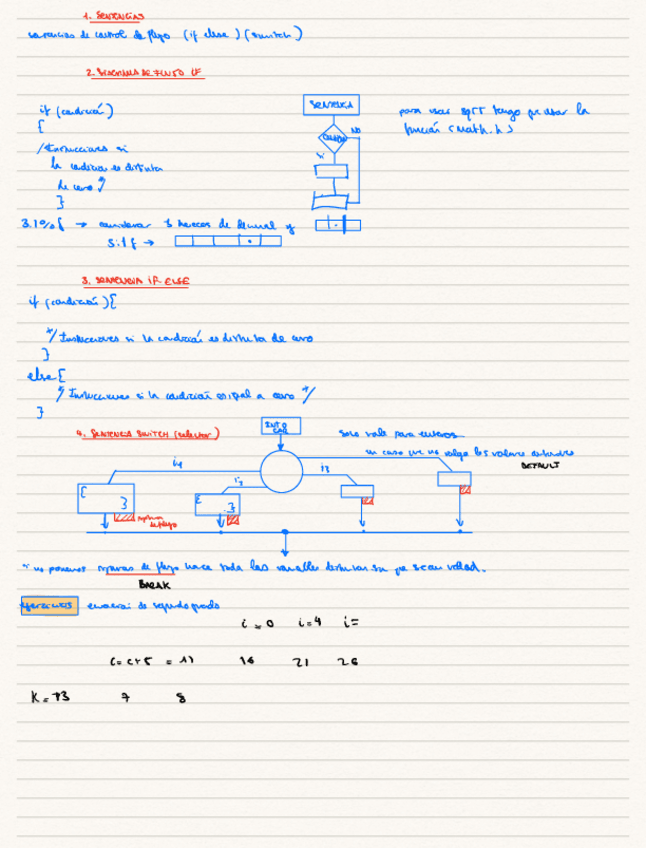 1. SENTENCIAS
sentencias de control de flujo (if else) (switch)
2. DIAGRAMA DE FLUJO IF
if (condición)
{
/*Instrucciones si
la condición es distinta
de cero*/
}
SENTENCIA
NO
Si
para usar sqrt tengo que usar la
función <math.h>
3.1%f → considerar 3 huecos de decimal y
5.1f →
3. SENTENCIA IF ELSE
if (condición){
*/Instrucciones si la condición es distinta de cero
}
else{
/* Instrucciones si la condición es igual a cero */
}
4. SENTENCIA SWITCH (selector)
Solo vale para enteros
en caso que no valga los valores
DEFAULT
i4
i3
i3
{ }
{ }
ruptura
de flujo
no ponemos rupturas de flujo hace todas las
BREAK
ejercicios ecuación de segundo grado
i=0 i=4 i=
c=c+5 = 11 16 21 26
K=73 7 8